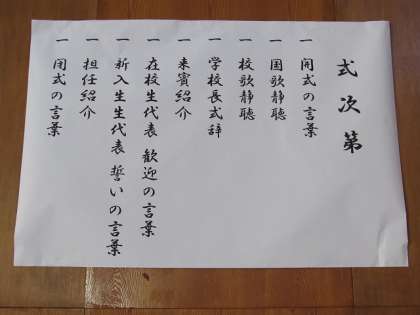 式次第
一 開式の言葉
一 国歌静聴
一 校歌静聴
一 学校長式辞
一 来賓紹介
一 在校生代表 歓迎の言葉
一 新入生生代表 誓いの言葉
一 担任紹介
一 閉式の言葉